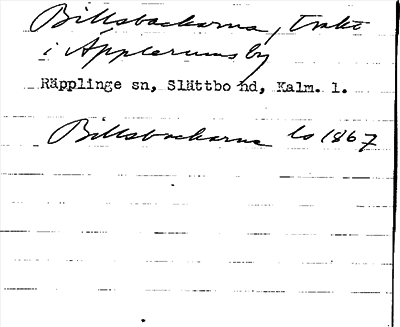 Billsbackarna, trakt
i Äpplerums by
Räpplinge sn, Slättbo hd, Kalm. l.
Billsbackarna ls 1867